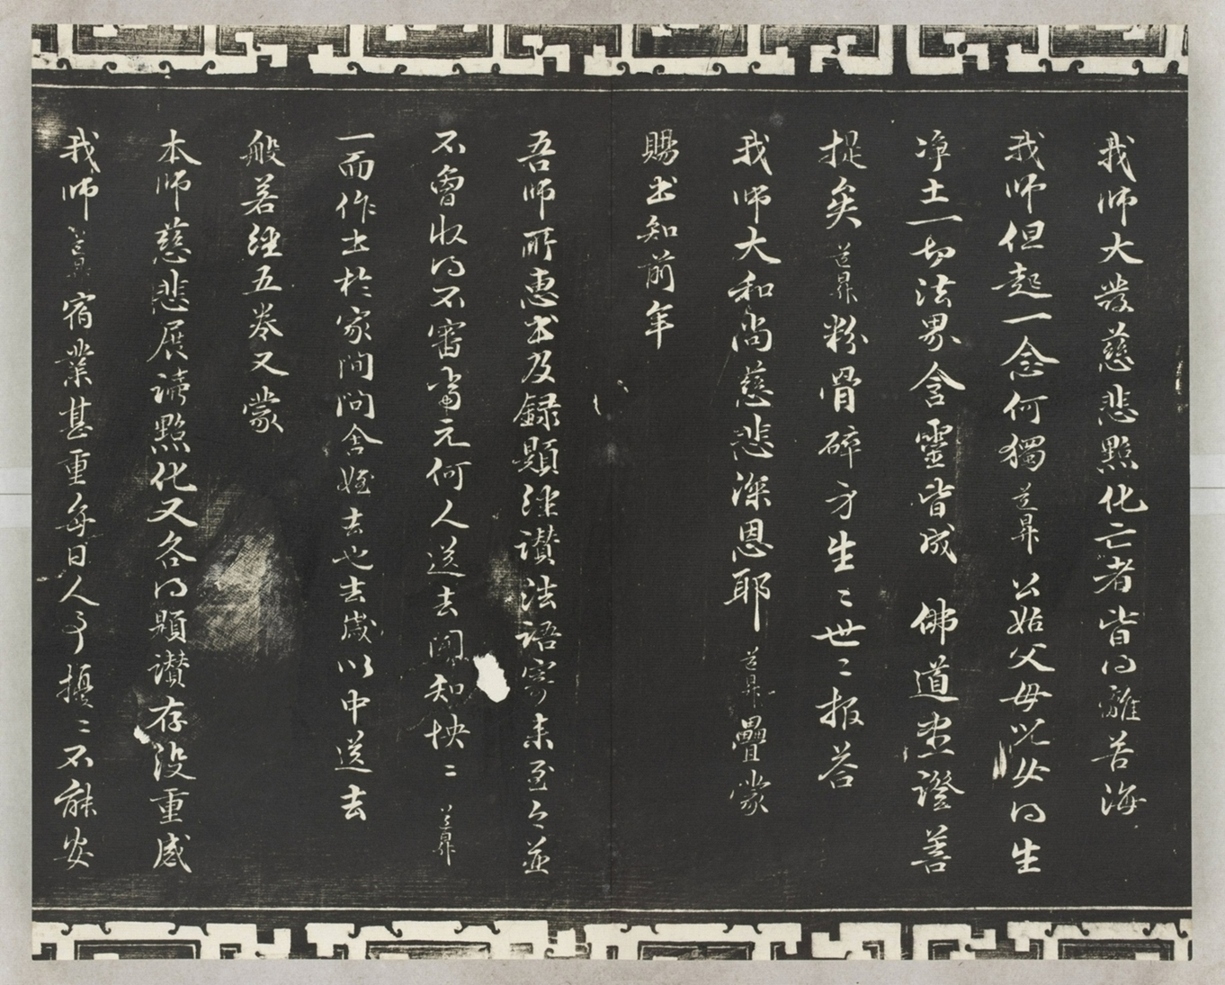 我師大發慈悲點化亡者皆得離苦海
我師但起一念何獨道昇公姑父母兒女得生
淨土一切法界含靈皆成 佛道悉證善
提矣道昇粉骨碎身生々世々報答
我師大和尚慈悲深恩耶道昇疊蒙
賜書知前年
吾師所惠書及錄題經讚法語寄来至今並
不曾收得不審當元何人送去開知怏々道昇
一而作書於家間問舍姪去也去歲以中送去
般若經五卷又蒙
本師慈悲展讀點化又各得題讚存没重感
我師道昇宿業甚重每日人事擾々不能安